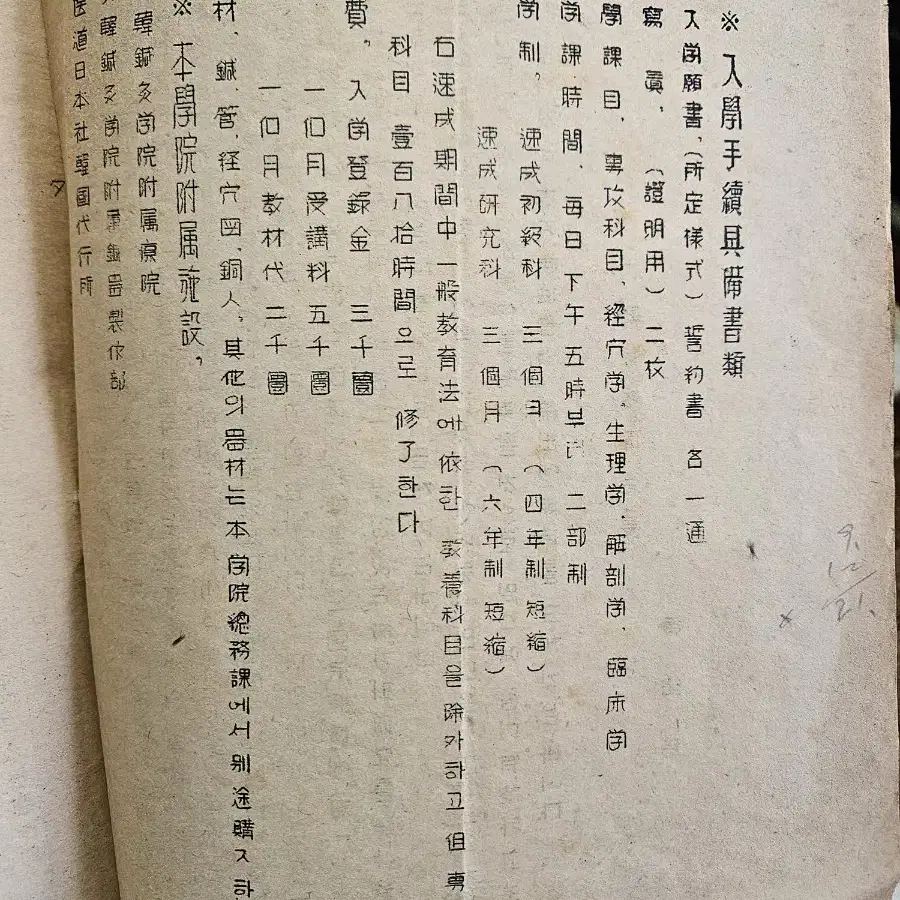 ※ 入學手續具備書類
入学願書、(所定樣式) 誓約書 各一通
寫 眞、 (證明用) 二枚
學課目、專攻科目、經穴学、生理学、解剖学、臨床学
学課時間、每日下午五時부터 二部制
学制、 速成初級科 三個月 (四年制短縮)
速成研究科 三個月 (六年制短縮)
右速成期間中一般教育法에依한 敎養科目을除外하고但專
科目 壹百八拾時間으로 修了한다
費、 入学登錄金 三千圜
一個月受講料 五千圜
一個月教材代 二千圜
材、鍼、管、経穴図、銅人、其他의器材는本学院總務課에서別途購入하
※ 本學院附属施設、
韓鍼灸学院附属療院
韓鍼灸学院附属鍼器製作部
医道日本社韓國代行所